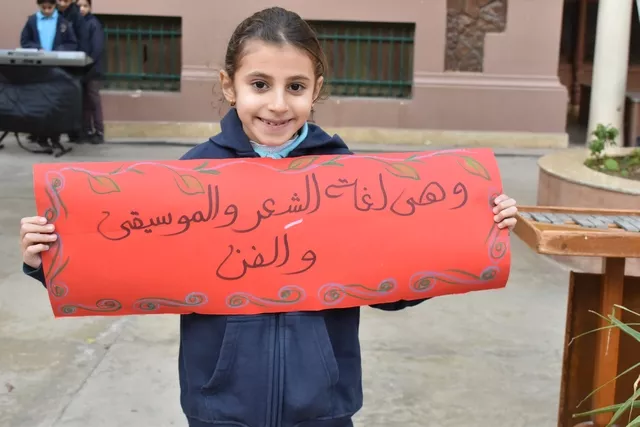 وهى لغات الشعر والموسيقى
والفن